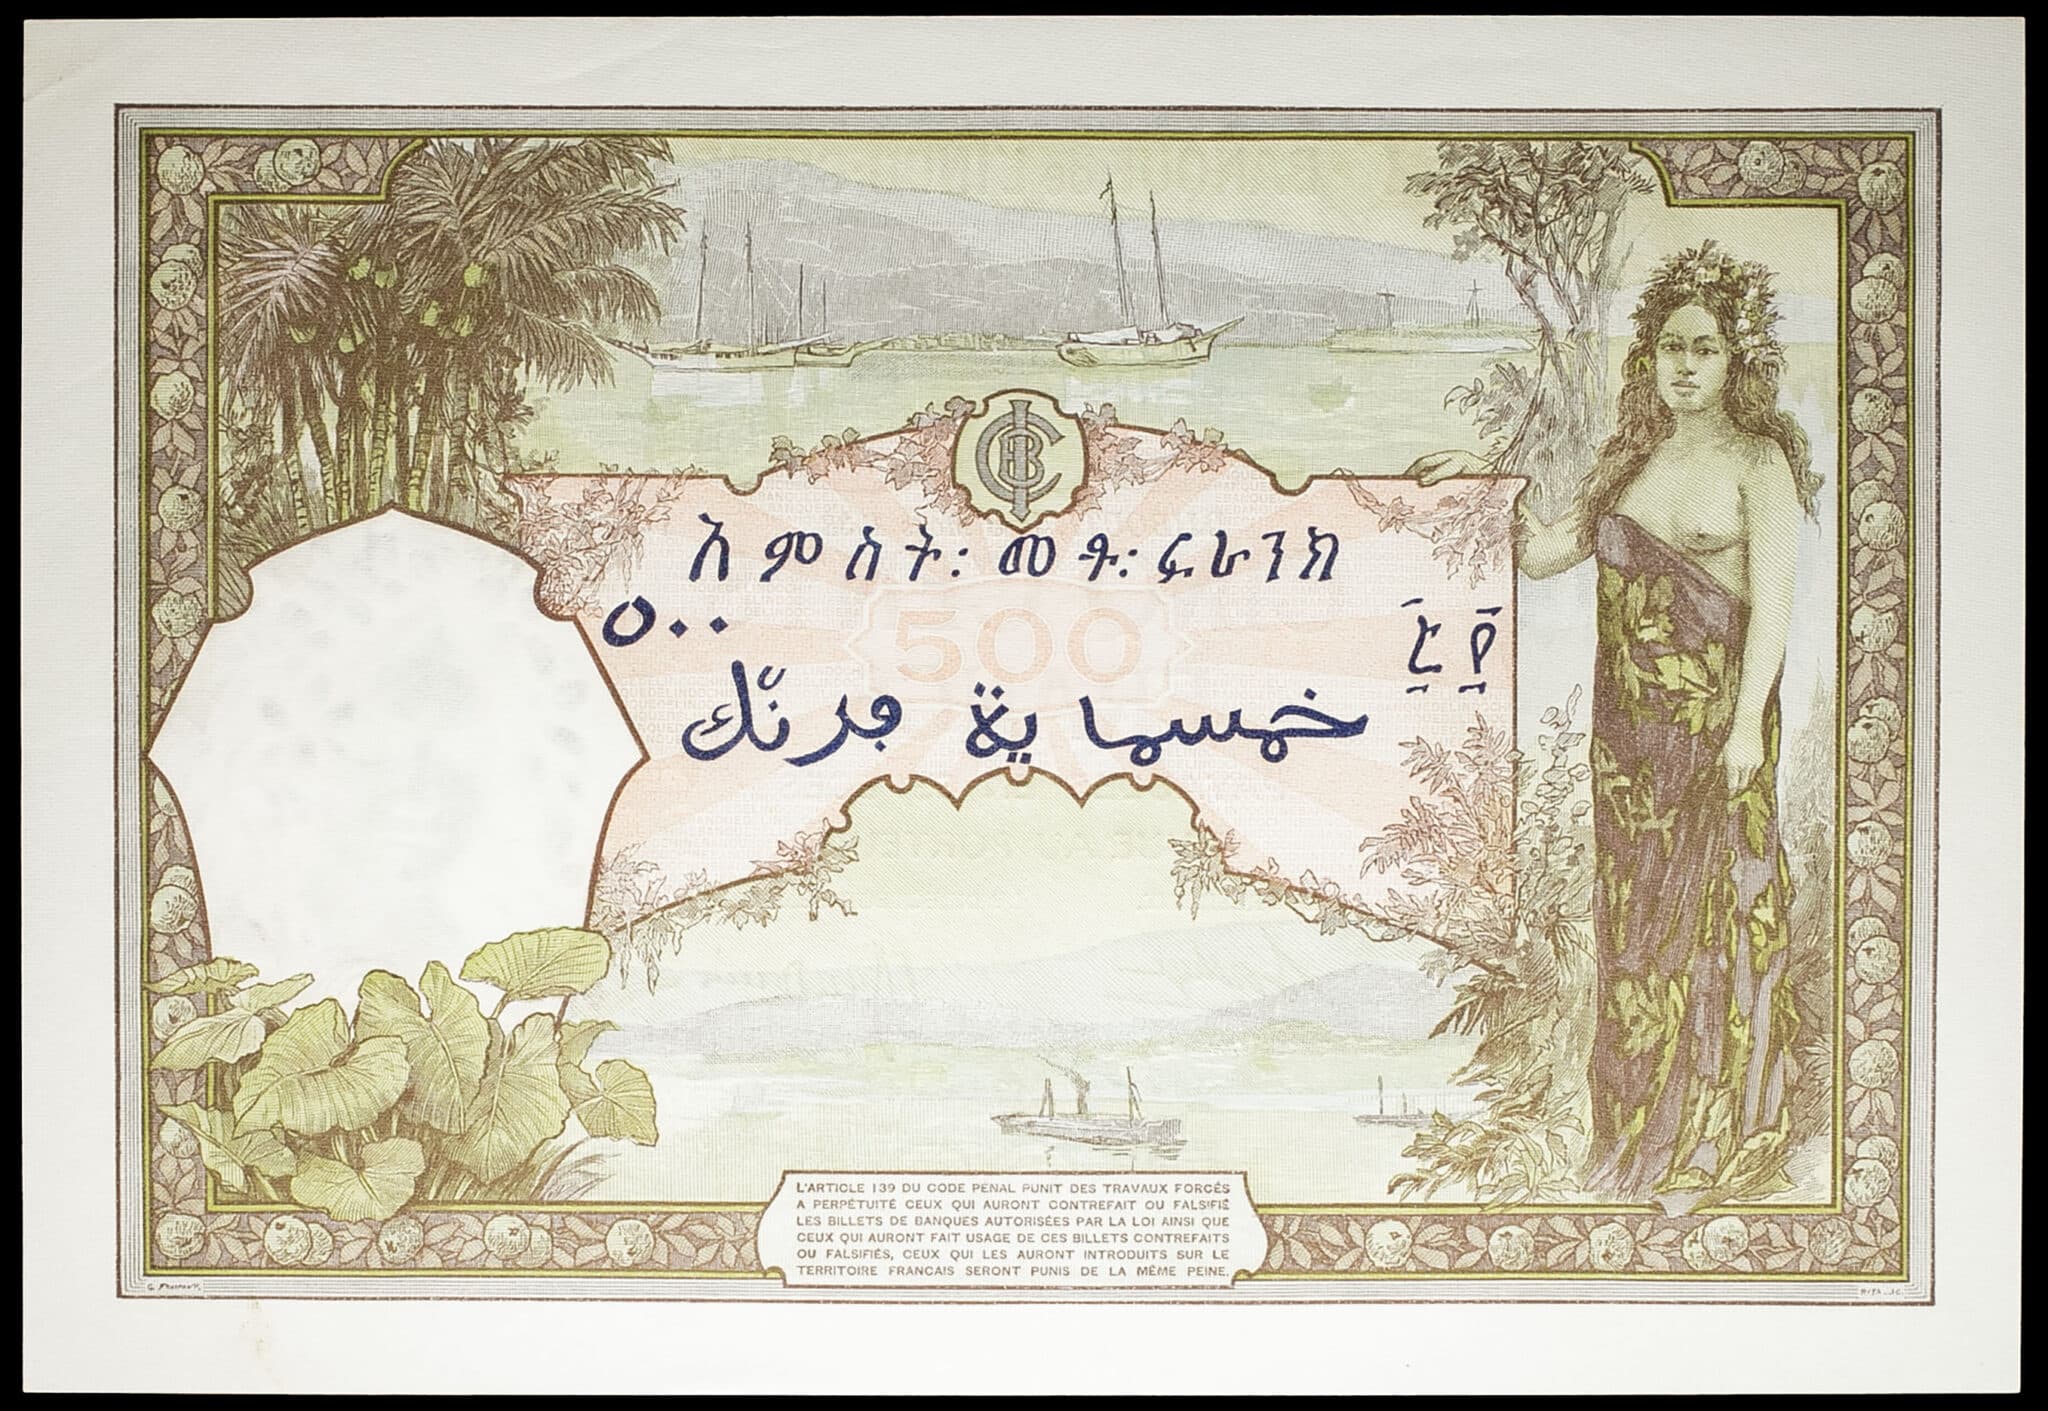 አምስት፡ መቶ፡ ፍራንክ
500
٥٠٠
፭ ፻
خمسماية فرنك
L'ARTICLE 139 DU CODE PÉNAL PUNIT DES TRAVAUX FORCÉS
A PERPÉTUITÉ CEUX QUI AURONT CONTREFAIT OU FALSIFIÉ
LES BILLETS DE BANQUES AUTORISÉES PAR LA LOI AINSI QUE
CEUX QUI AURONT FAIT USAGE DE CES BILLETS CONTREFAITS
OU FALSIFIÉS, CEUX QUI LES AURONT INTRODUITS SUR LE
TERRITOIRE FRANCAIS SERONT PUNIS DE LA MÊME PEINE.